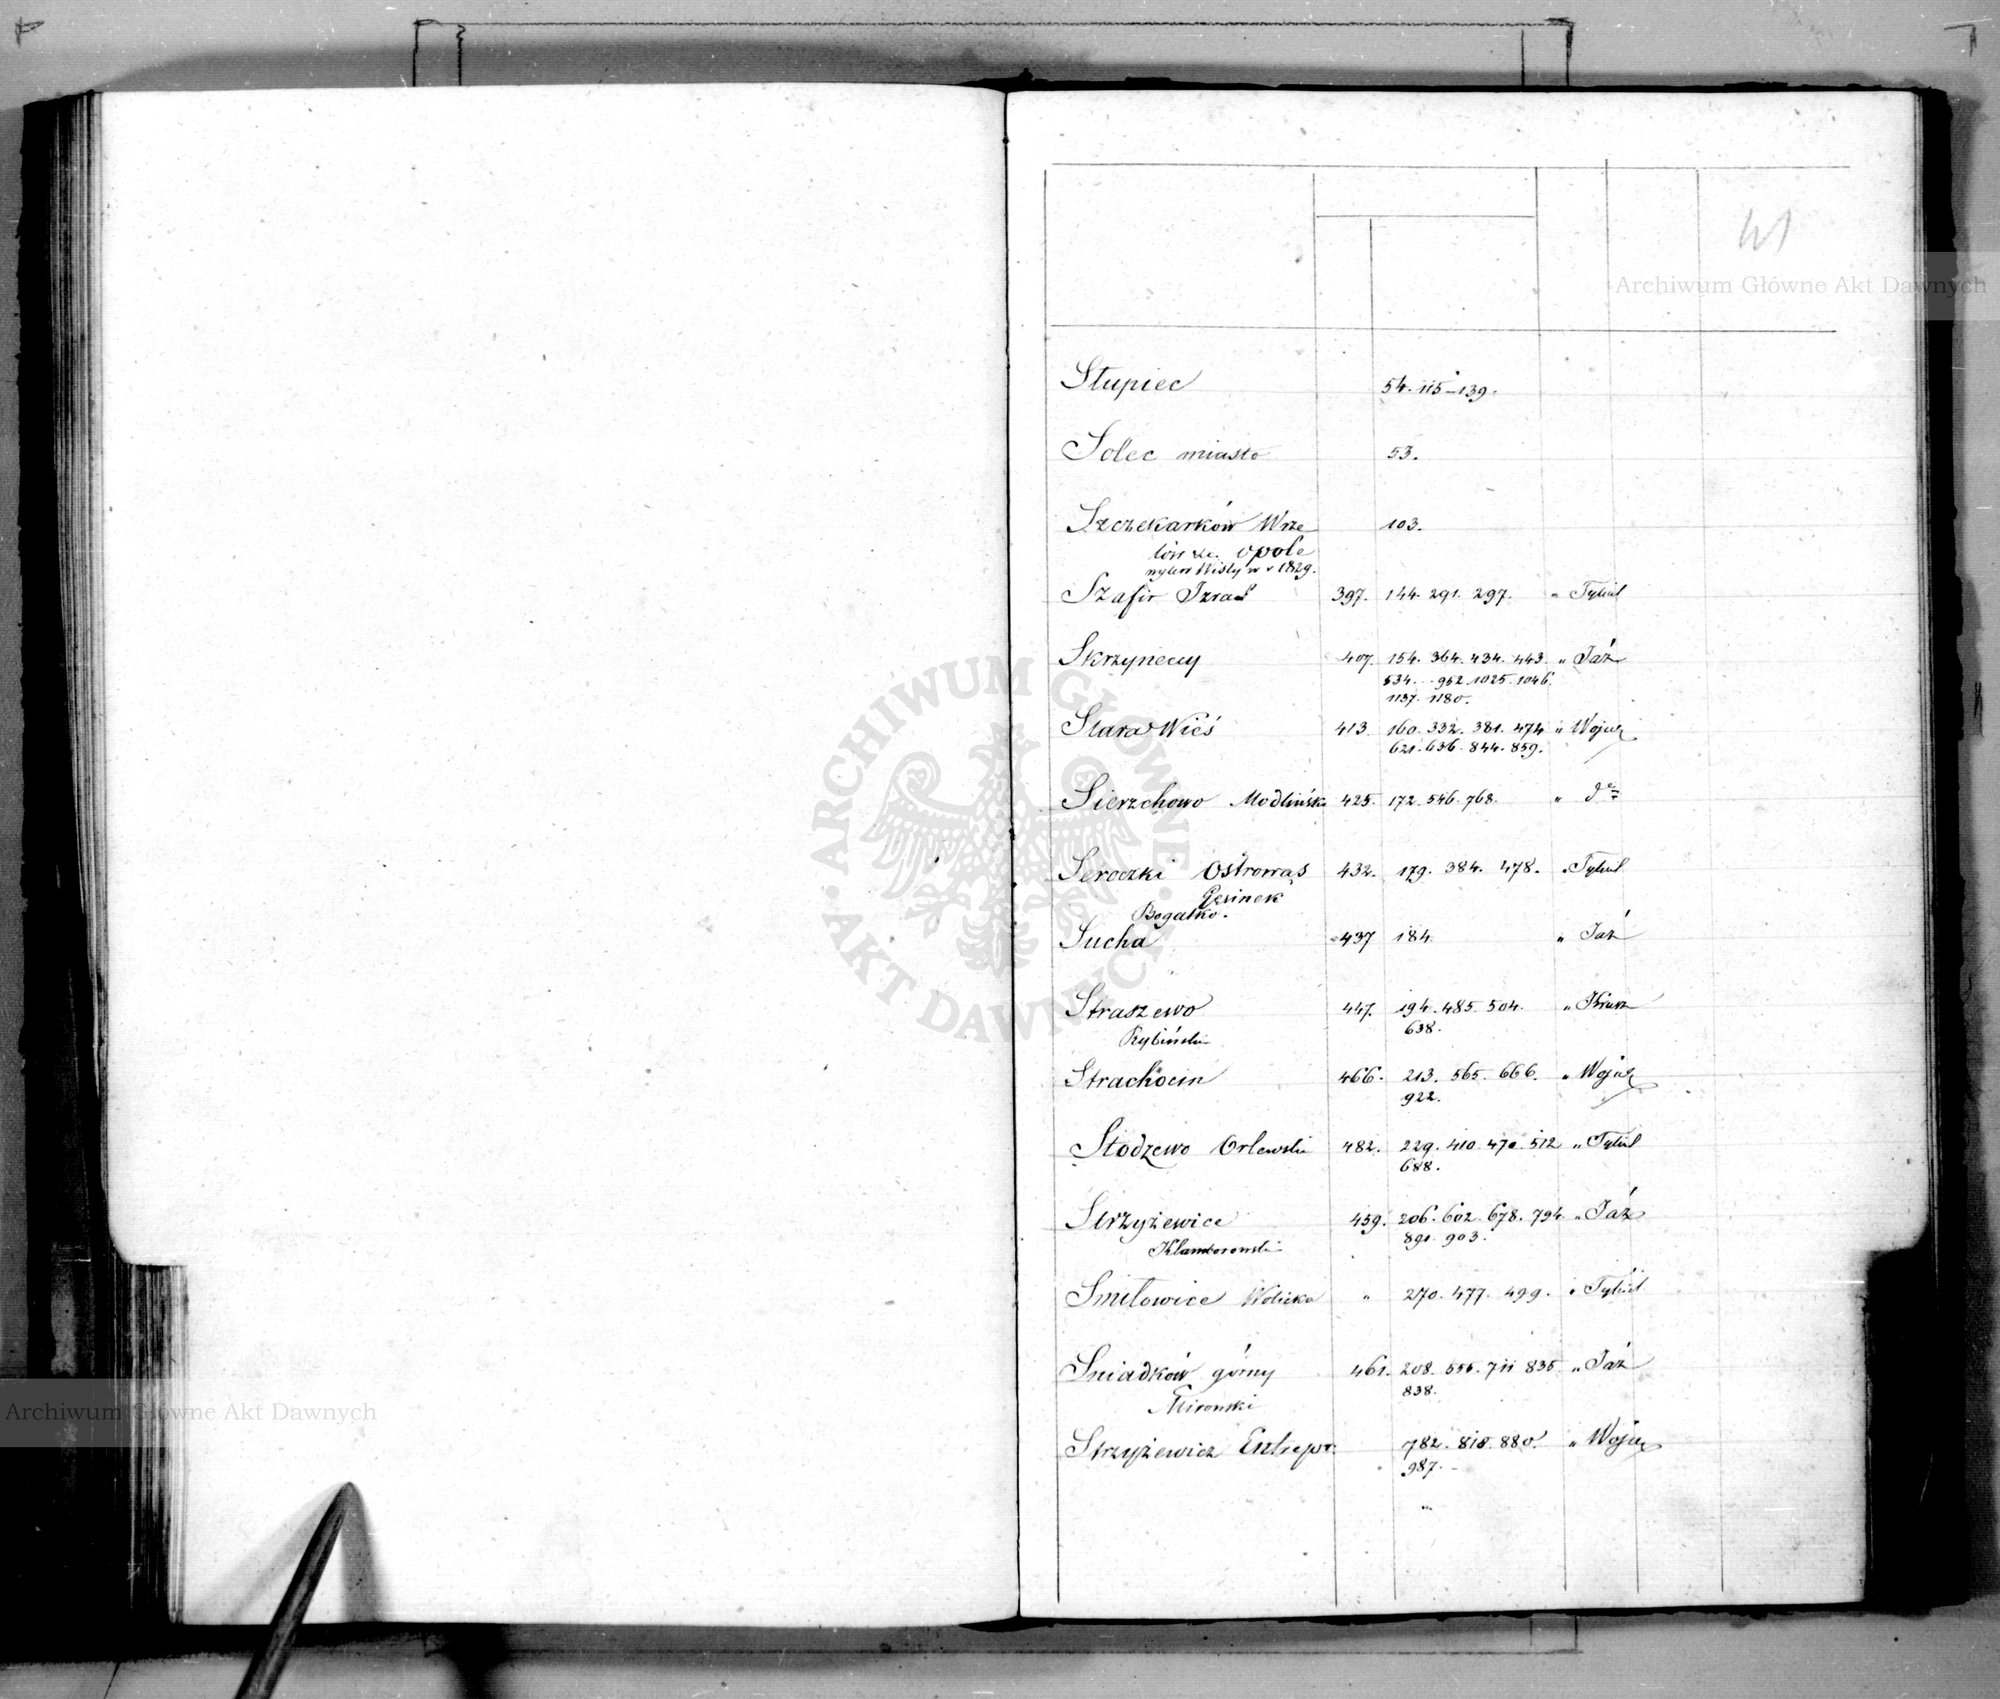 41
Archiwum Główne Akt Dawnych
Słupiec 54. 115 - 139.
Solec miasto 53.
Szczekarków Wrze 103.
lów &c. Opole
wylew Wisły w r 1829.
Szafir Izrael 397. 144. 291. 297. „ Tytuł
Skrzyneccy 407. 154. 364. 434. 443. „ Jaź
534. 952. 1025. 1046.
1137. 1180.
Stara Wieś 413. 160. 332. 381. 474 „ Wojuc
621. 636. 844. 859.
Sierzchowo Modlińsk 425. 172. 546. 768. „ do
Seroczki Ostrowąs 432. 179. 384. 478. „ Tytuł
Gęsinek
Bogatko.
Sucha 437 184. „ Jaź
Straszewo 447. 194. 485. 504. „ Krusz
Rybiński 638.
Strachocin 466. 213. 565. 666. „ Wojuc
922.
Stodzewo Orlewski 482. 229. 410. 470. 512 „ Tytuł
688.
Strzyżewice 459. 206. 602. 678. 794. „ Jaź
Klamborowski 891. 903.
Smiłowice Wolicka „ 270. 477. 499. „ Tytuł
Sniadków górny 461. 208. 556. 711 835 „ Jaź
Mironski 838.
Strzyżewicz Entrepr. 782. 818. 880. „ Wojuc
987.
„
ARCHIWUM GŁÓWNE AKT DAWNYCH
Archiwum Główne Akt Dawnych